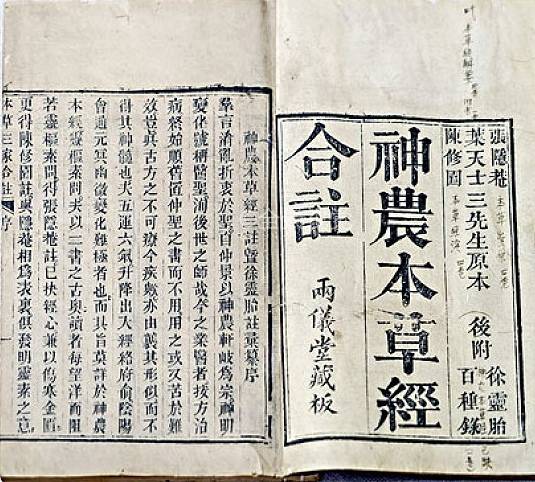 張隱菴
葉天士三先生原本
陳修園
後附
徐靈胎
百種錄
神農本草經
合註
兩儀堂藏板
神農本草經三註暨徐靈胎註彙纂序
羣言淆亂折衷於聖自仲景以神農軒岐為宗神明
變化號稱醫聖洵後世之師哉今之業醫者按方治
病終始順舊仲聖之書而不用用之或又苦於難
效豈眞古方之不可療今疾歟亦由襲其形似而不
得其神髓也夫五運六氣升降出入經絡府俞陰陽
會通元冥幽微變化難極者也而其旨莫詳於神農
本經靈樞素問求以二書之古奧讀者每望洋而阻
若靈樞素問得張隱菴註已扶經心兼以傷寒金匱
更得陳修園註與隱菴相為表裏俱發明靈素之意
本草三家合註 序